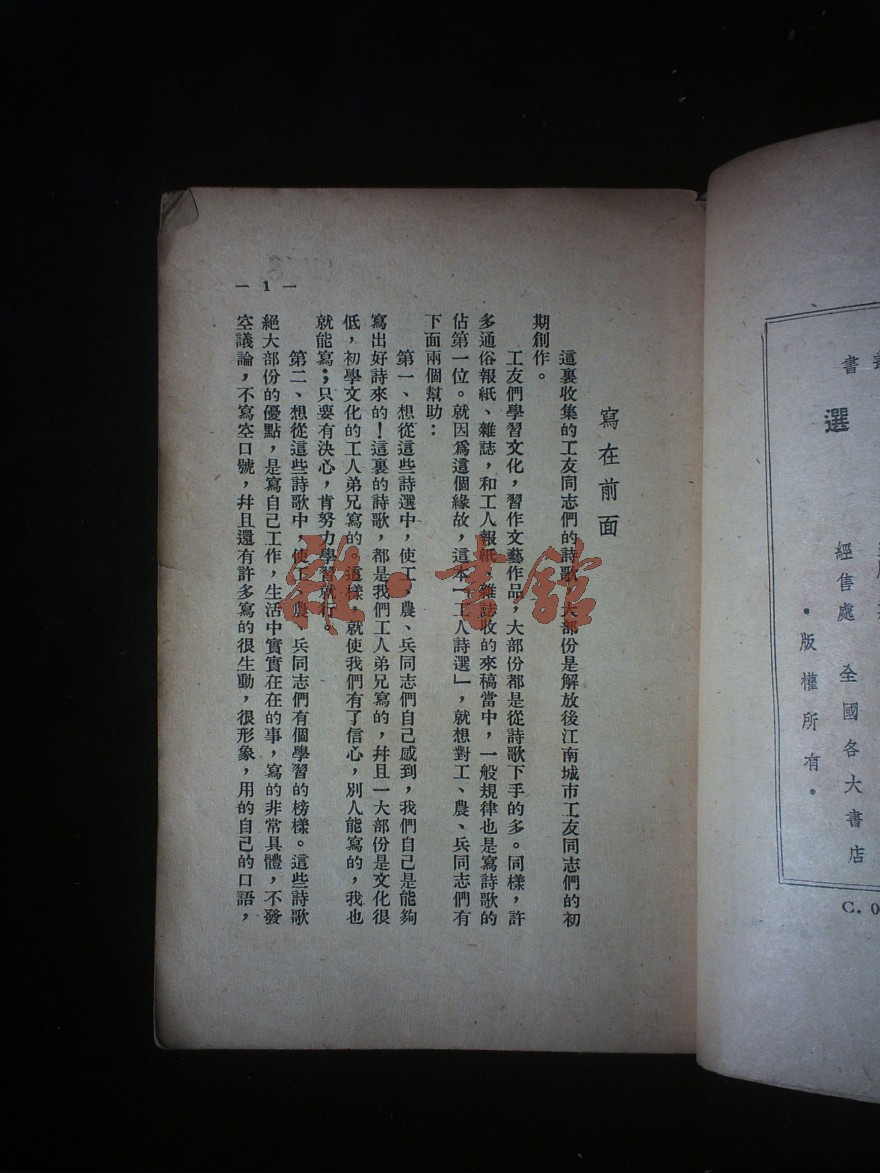 書
選
經售處　全國各大書店
•版權所有•
C. 0
寫在前面
這裏收集的工友同志們的詩歌，大部份是解放後江南城市工友同志們的初
期創作。
工友們學習文化，習作文藝作品，大部份都是從詩歌下手的多。同樣，許
多通俗報紙、雜誌，和工人報紙、雜誌收的來稿當中，一般規律也是寫詩歌的
佔第一位。就因爲這個緣故，這本「工人詩選」，就想對工、農、兵同志們有
下面兩個幫助：
第一、想從這些詩選中，使工、農、兵同志們自己感到，我們自己是能夠
寫出好詩來的！這裏的詩歌，都是我們工人弟兄寫的，幷且一大部份是文化很
低，初學文化的工人弟兄寫的。這樣，就使我們有了信心，別人能寫的，我也
就能寫；只要有決心，肯努力學習就行。
第二、想從這些詩歌中，使工、農、兵同志們有個學習的榜樣。這些詩歌
絕大部份的優點，是寫自己工作，生活中實實在在的事，寫的非常具體，不發
空議論，不寫空口號，幷且還有許多寫的很生動，很形象，用的自己的口語，
— 1 —
雜·書館